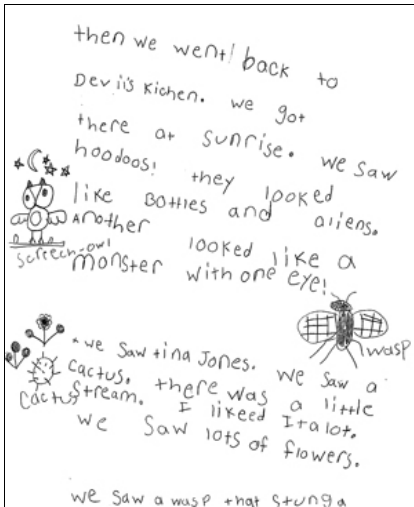 then we went back to
Devils Kichen. we got
there at sunrise. we saw
hoodoos! they looked
like Bottles and aliens.
Another looked like a
monster with one eye!
screech-owl
wasp
*we saw tina Jones. we saw a
cactus. there was a little
stream. I likeed It alot.
we saw lots of flowers.
Cactus
we saw a wasp that stung a